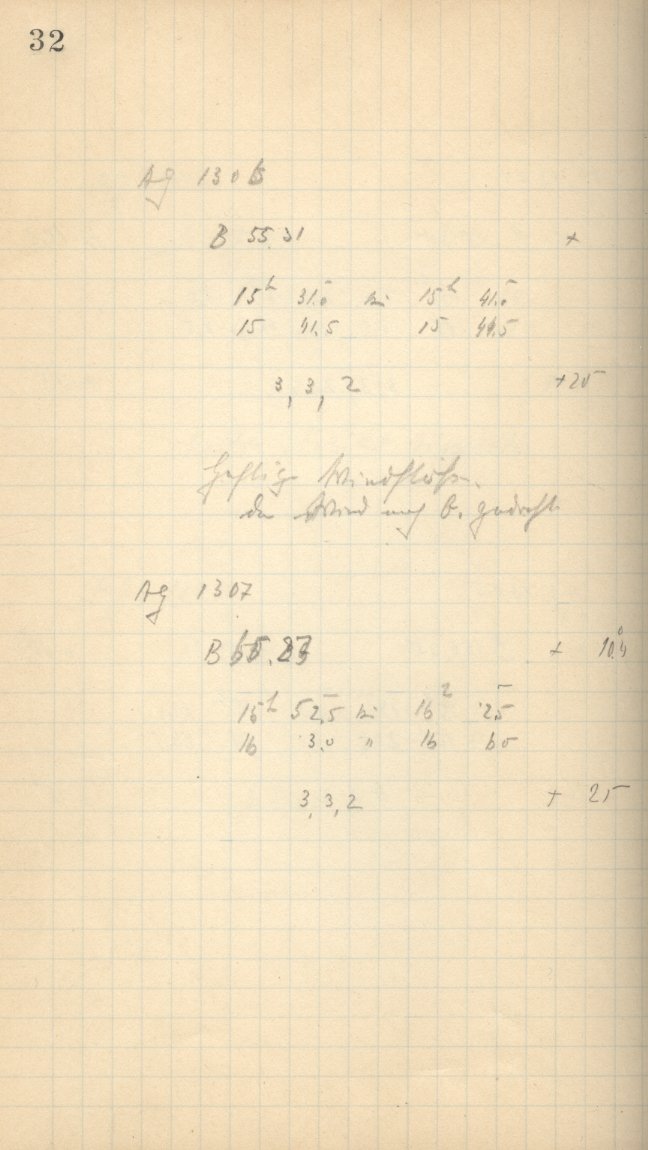 32
Ag 1306
B 55.31 +
15h 31.0 bis 15h 41.0
15 41.5 15 44.5
3, 3, 2 +25
Heftige Windstöße.
da Wind nach O. gedreht
Ag 1307
B 55.23 + 10.4
15h 52.5 bis 16h 2.5
16 3.0 " 16 6.0
3, 3, 2 + 25